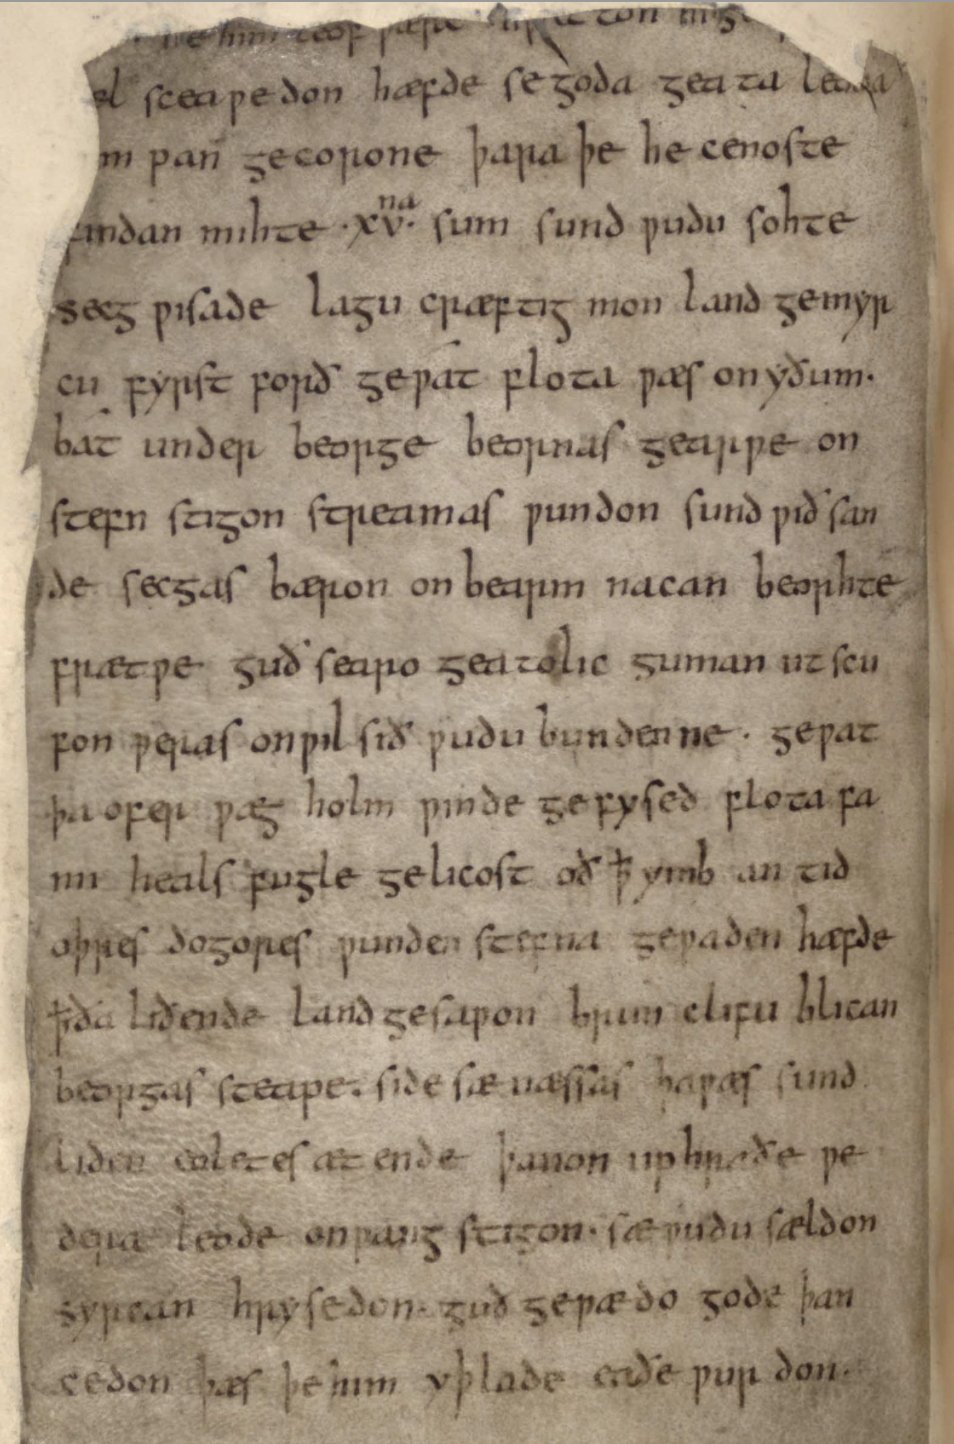 he him leof ƿære
el sceaƿedon hæfde se goda geata leoda
m pan gecorone þara þe he cenoste
findan mihte ·xv·na sum sund ƿudu sohte
secg ƿisade lagu cræftig mon land gemyr
cu fyrst forð geƿat flota ƿæs on yðum·
bat under beorge beornas gearƿe on
stefn stigon streamas ƿundon sund ƿið san
de secgas bæron on bearm nacan beorhte
frætƿe guð searo geatolic guman ut scu
fon ƿeras on ƿil sið ƿudu bundenne · geƿat
þa ofer ƿæg holm ƿinde gefysed flota fa
mi heals fugle gelicost oð ꝥ ymb an tid
oþres dogores ƿunden stefna geƿaden hæfde
ꝥ ða liðende land gesaƿon brim clifu blican
beorgas steape· side sæ næssas þa ƿæs sund
liden eoletes æt ende þanon up hraðe ƿe
dera leode on ƿang stigon· sæ ƿudu sældon
syrcan hrysedon· guð geƿædo gode þan
cedon þæs þe him yþlade eaðe ƿur don·